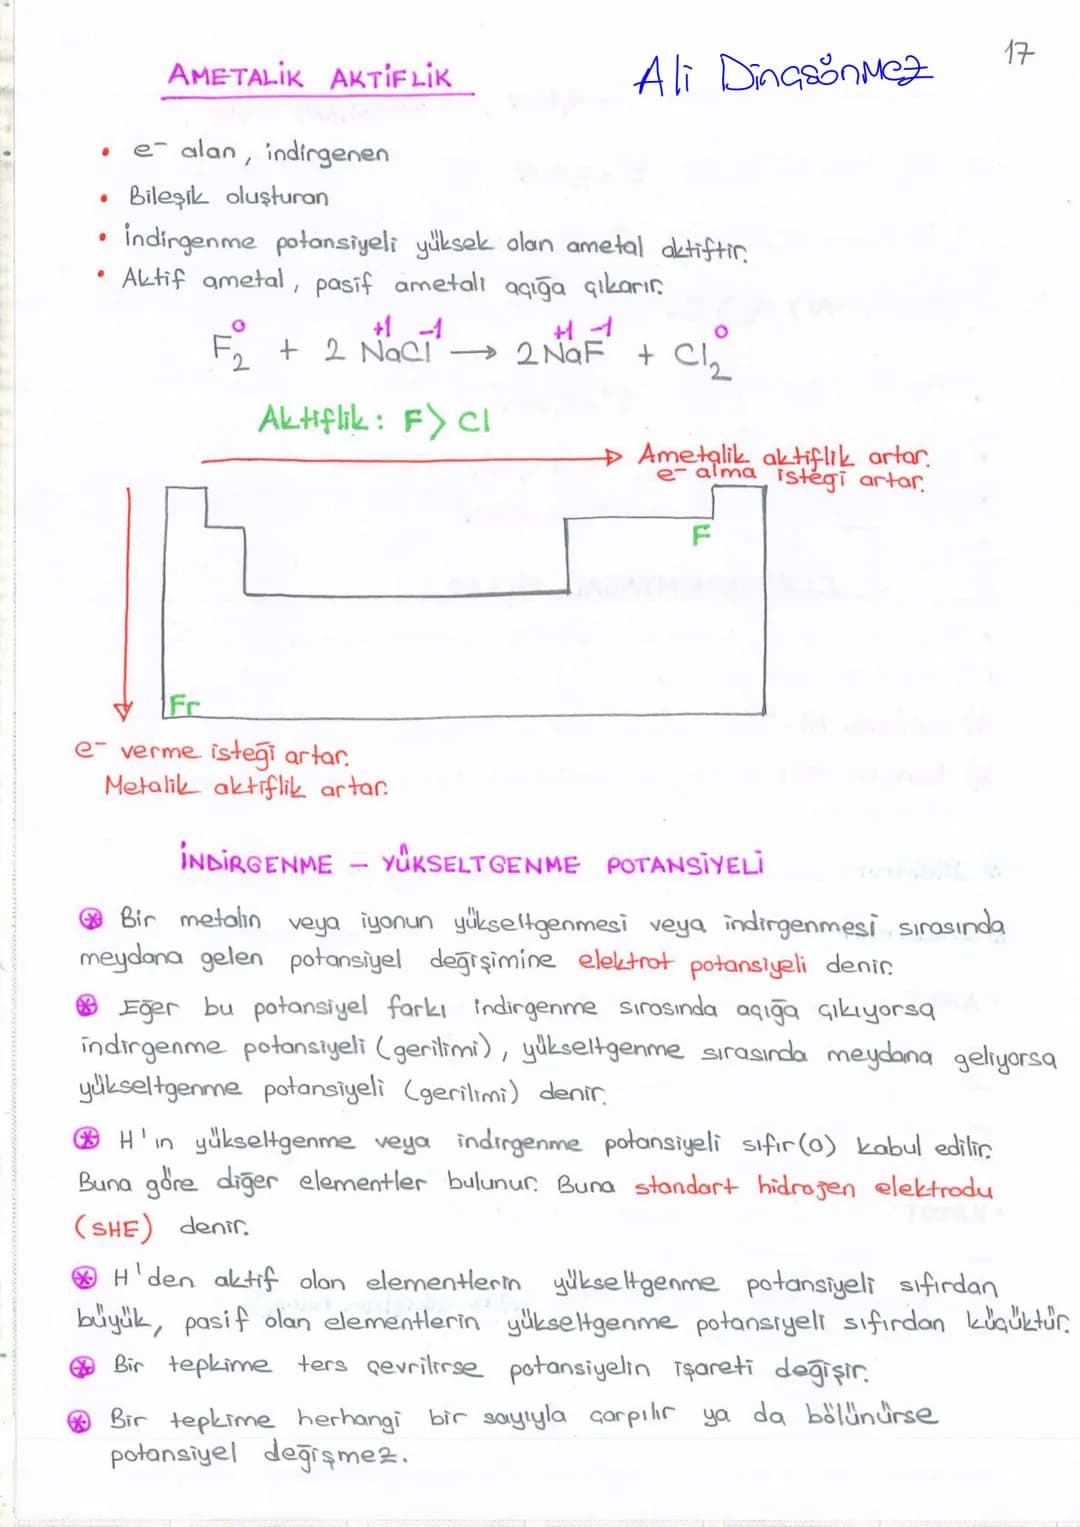 17
AMETALİK AKTİFLİK
Ali Dinçsönmez
• e⁻ alan, indirgenen
• Bileşik oluşturan
• İndirgenme potansiyeli yüksek olan ametal aktiftir.
• Aktif ametal, pasif ametali açığa çıkarır.
F₂⁰ + 2 Na⁺¹Cl⁻¹ → 2 Na⁺¹F⁻¹ + Cl₂⁰
Aktiflik: F > Cl
Ametalik aktiflik artar.
e⁻ alma isteği artar.
F
Fr
e⁻ verme isteği artar.
Metalik aktiflik artar.
İNDİRGENME – YÜKSELTGENME POTANSİYELİ
⊛ Bir metalin veya iyonun yükseltgenmesi veya indirgenmesi sırasında
meydana gelen potansiyel değişimine elektrot potansiyeli denir.
⊛ Eğer bu potansiyel farkı indirgenme sırasında açığa çıkıyorsa
indirgenme potansiyeli (gerilimi), yükseltgenme sırasında meydana geliyorsa
yükseltgenme potansiyeli (gerilimi) denir.
⊛ H'ın yükseltgenme veya indirgenme potansiyeli sıfır (0) kabul edilir.
Buna göre diğer elementler bulunur. Buna standart hidrojen elektrodu
(SHE) denir.
⊛ H'den aktif olan elementlerin yükseltgenme potansiyeli sıfırdan
büyük, pasif olan elementlerin yükseltgenme potansiyeli sıfırdan küçüktür.
⊛ Bir tepkime ters çevrilirse potansiyelin işareti değişir.
⊛ Bir tepkime herhangi bir sayıyla çarpılır ya da bölünürse
potansiyel değişmez.